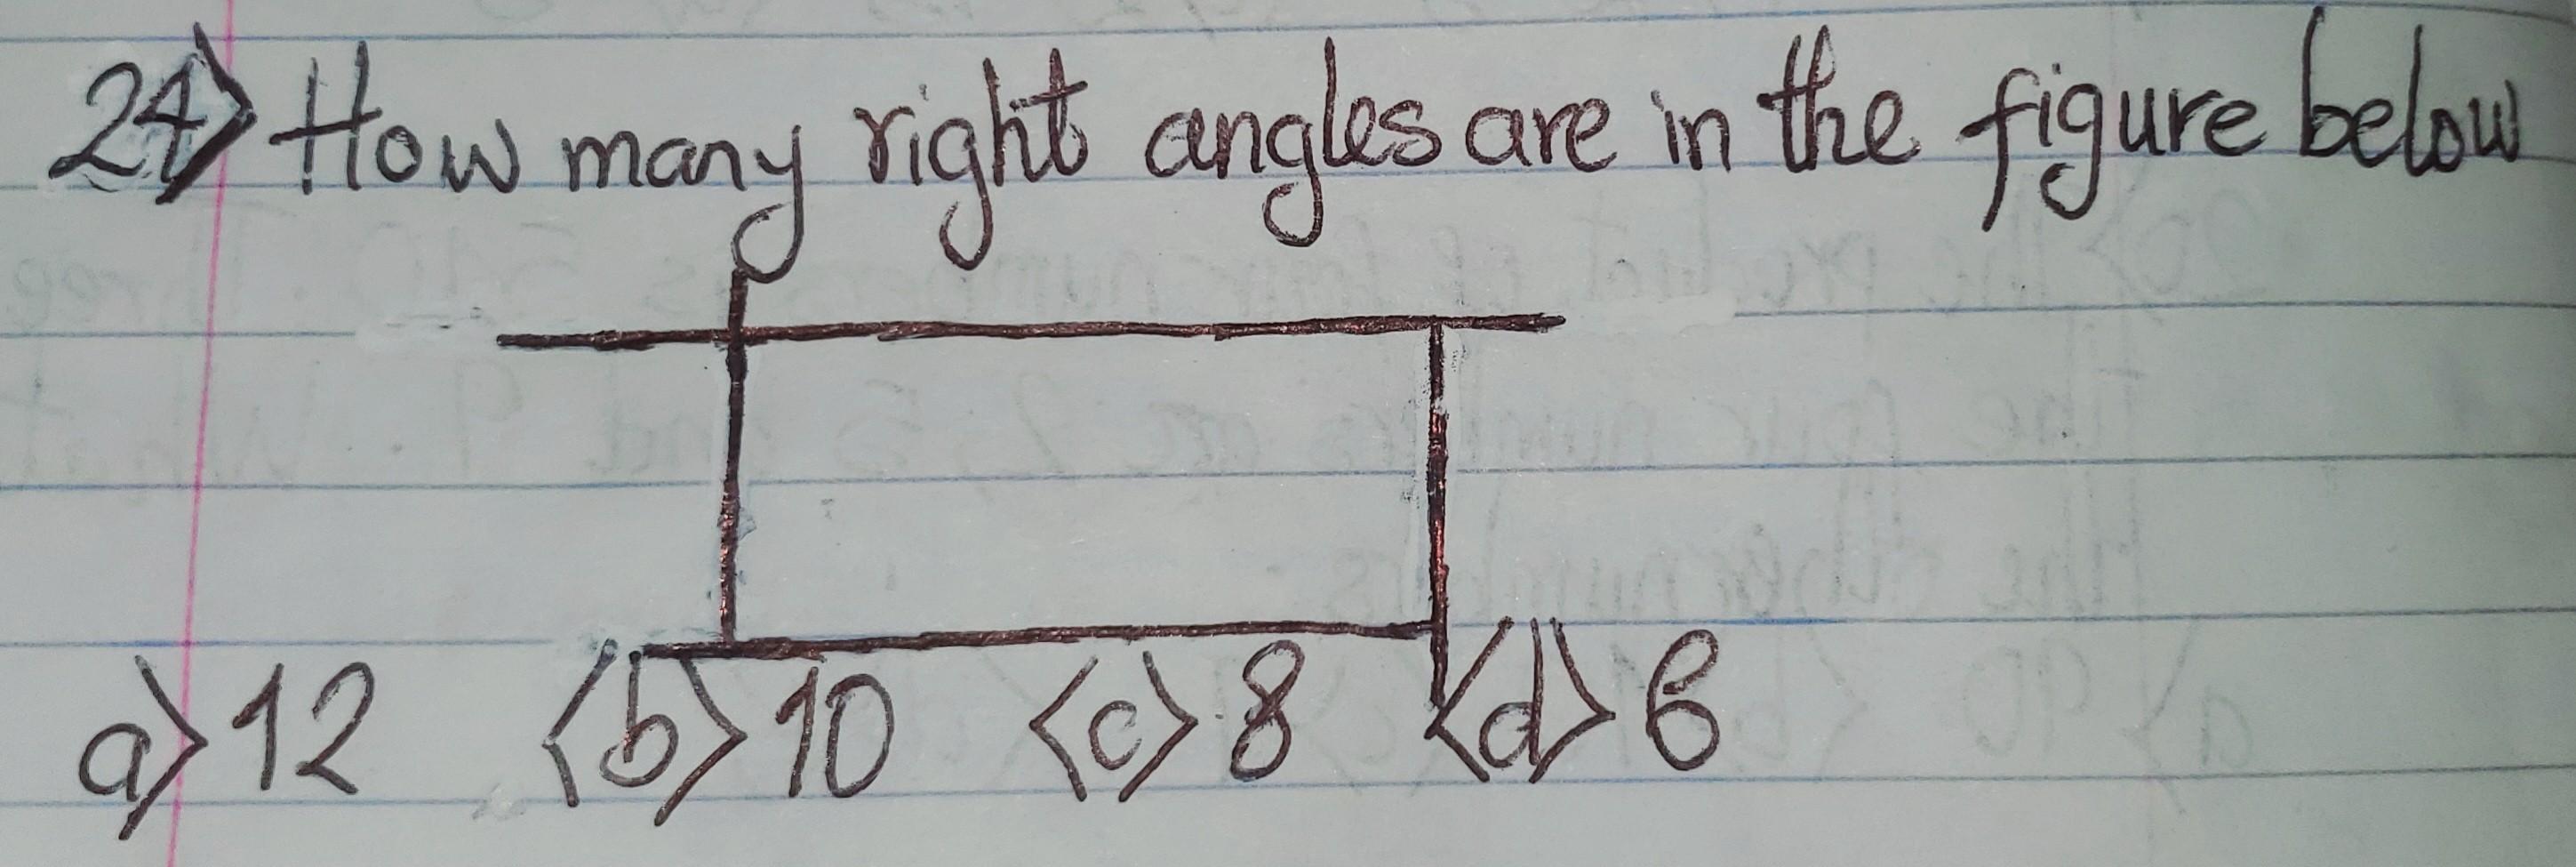 24> How many right angles are in the figure below
a> 12 <b> 10 <c> 8 <d> 6